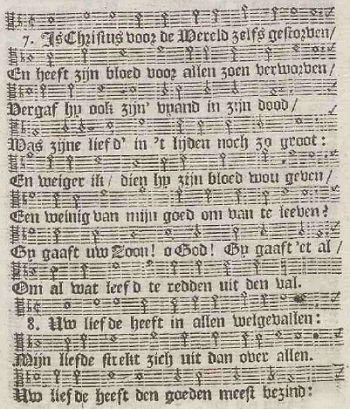 7. Is Christus voor de Wereld zelfs gestorven/
En heeft zijn bloed voor allen zoen verworven/
Vergaf hy ook zijn' vyand in zijn dood/
Was zyne liefd' in 't lijden noch zo groot:
En weiger ik/ dien hy zijn bloed wou geven/
Een weinig van mijn goed om van te leeven?
Gy gaaft uw Zoon! o God! Gy gaaft 'et al/
Om al wat leefd te redden uit den val.
8. Uw liefde heeft in allen welgevallen:
Mijn liefde strekt zich uit dan over allen.
Uw liefde heeft den goeden meest bezind: